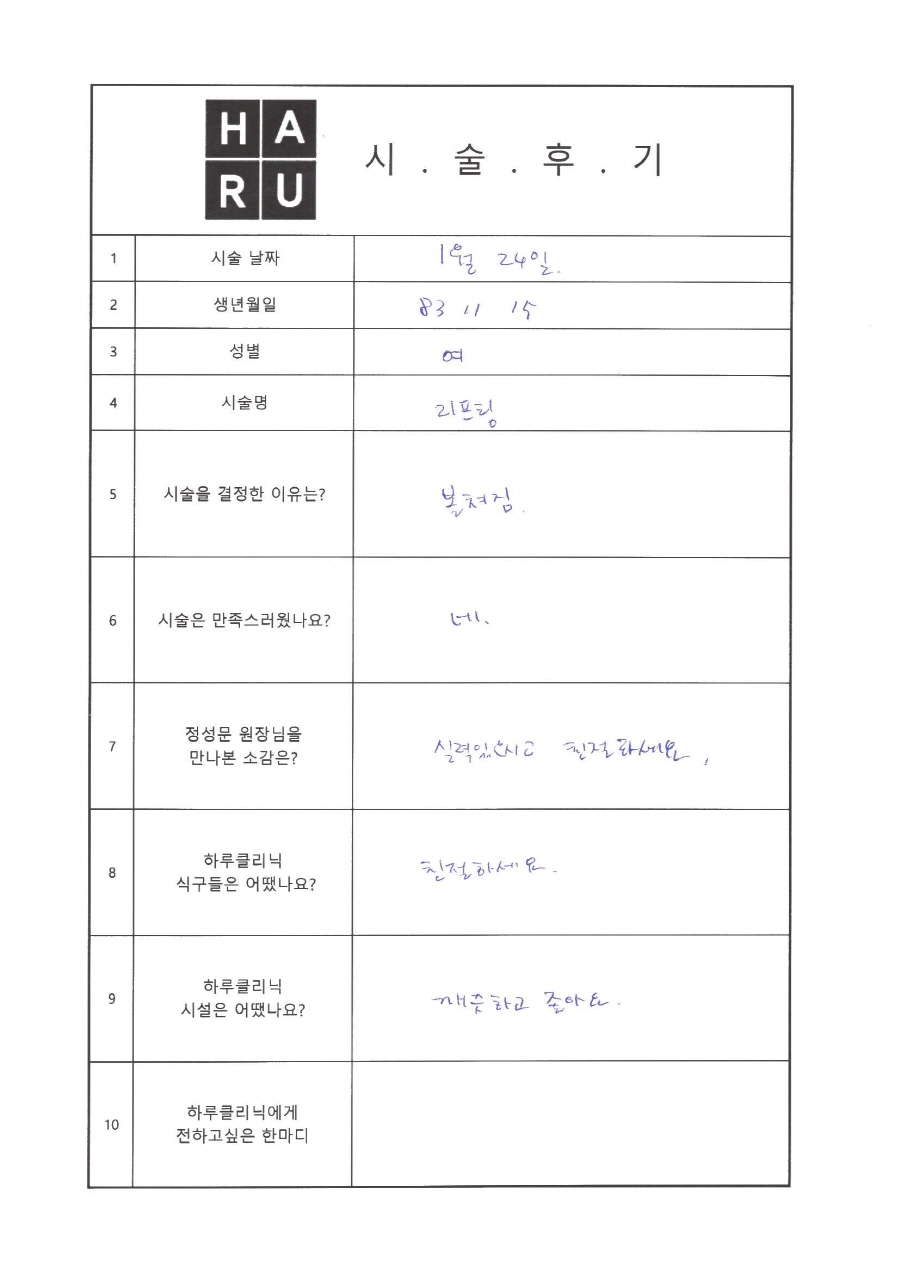 HA
RU
시 . 술 . 후 . 기
1 시술 날짜 1월 24일.
2 생년월일 83 11 15
3 성별 여
4 시술명 리프팅
5 시술을 결정한 이유는? 볼쳐짐.
6 시술은 만족스러웠나요? 네.
7 정성문 원장님을
만나본 소감은? 실력있으시고 친절하세요.
8 하루클리닉
식구들은 어땠나요? 친절하세요.
9 하루클리닉
시설은 어땠나요? 깨끗하고 좋아요.
10 하루클리닉에게
전하고싶은 한마디